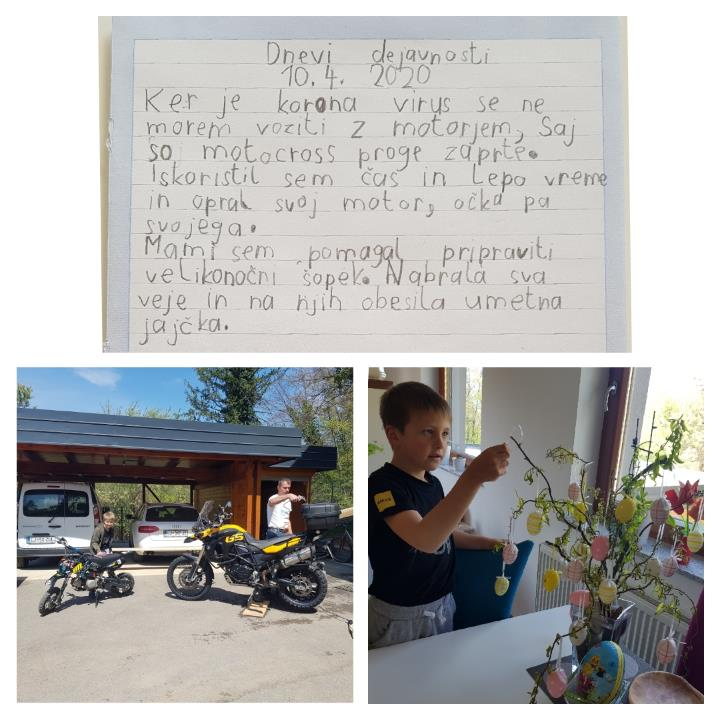 Dnevi dejavnosti
10. 4. 2020
Ker je korona virus se ne
morem voziti z motorjem, Saj
so motocross proge zaprte.
Iskoristil sem čas in Lepo vreme
in opral svoj motor, očka pa
svojega.
Mami sem pomagal pripraviti
velikonočni šopek. Nabrala sva
veje in na njih obesila umetna
jajčka.
GS